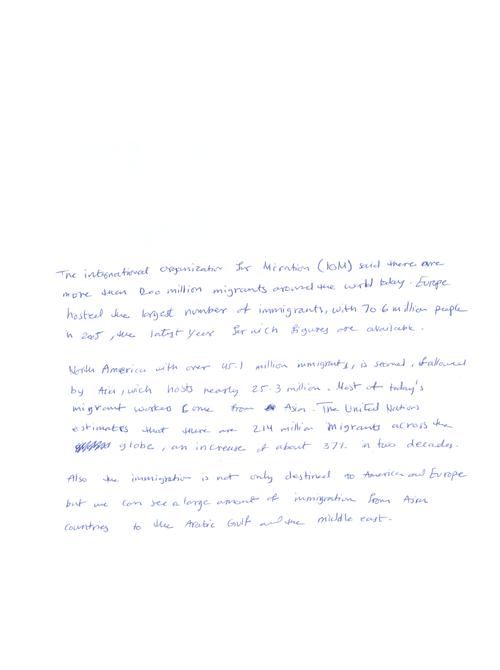 The international organization for Migration (IOM) said there are
more than 200 million migrants around the world today. Europe
hosted the largest number of immigrants, with 70.6 million people
in 2005, the latest year for wich figures are available.
North America with over 45.1 million immigrants, is second, followed
by Asia, wich hosts nearly 25.3 million. Most of today's
migrant workers come from Asia. The United Nations
estimates that there are 214 million migrants across the
globe, an increase of about 37% in two decades.
Also the immigration is not only destined to America and Europe
but we can see a large amount of immigration from Asian
countries to the Arabic Gulf and the middle east.